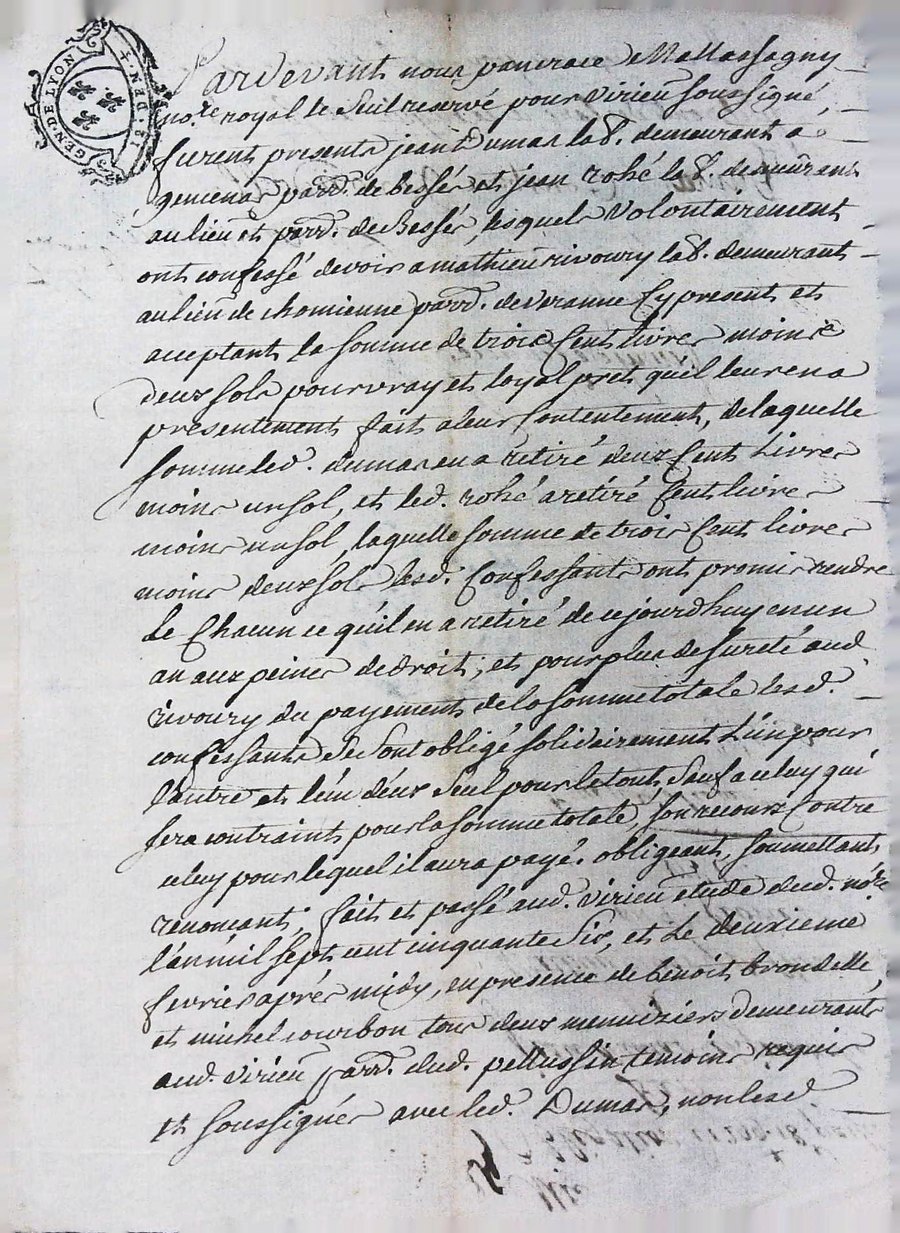 GEN. DE LYON
Pardevant nous pancrace Mallassagny
no.re royal le seul reservé pour virieu soussigné,
furent presents jean Dumas la8. demeurant a
parr. de bessé et jean rohé la8. demeurant
au lieu et parr. de Bessé, lesquels Volontairement
ont confessé devoir a mathieu rivoury la8. demeurant
au lieu de chomienne parr. de veranne Cy present et
acceptant la somme de trois Cent livres moins
deux sols pour vray et loyal pret qu'il leur en a
presentement fait a leur Contentement, de laquelle
somme led. dumas en a retiré deux Cent Livres
moins un sol, et led. rohé a retiré Cent livres
moins un sol, laquelle somme de trois Cent livres
moins deux sols lesd. Confessants ont promis rendre
Le Chacun ce qu'il en a retiré de ce jourdhuy en un
an aux peines de droit; et pour plus de sureté aud
rivoury du payement de la somme totale lesd.
confessants se sont obligé solidairement L'un pour
l'autre et l'un d'eux seul pour le tout, sauf a celuy qui
sera contraint pour la somme totale, son recours Contre
celuy pour lequel il aura payé. obligeant, soumettant,
renoncant; fait et passé aud. virieu etude dud. no.re
l'an mil sept cent cinquante six, et Le deuxieme
fevrier aprés midy, en presence de benoit brondelle
et michel courbon tous deux menuiziers demeurants
aud. virieu parr. dud. pellussin temoins requis
et soussignés avec led. Dumas, non lesd